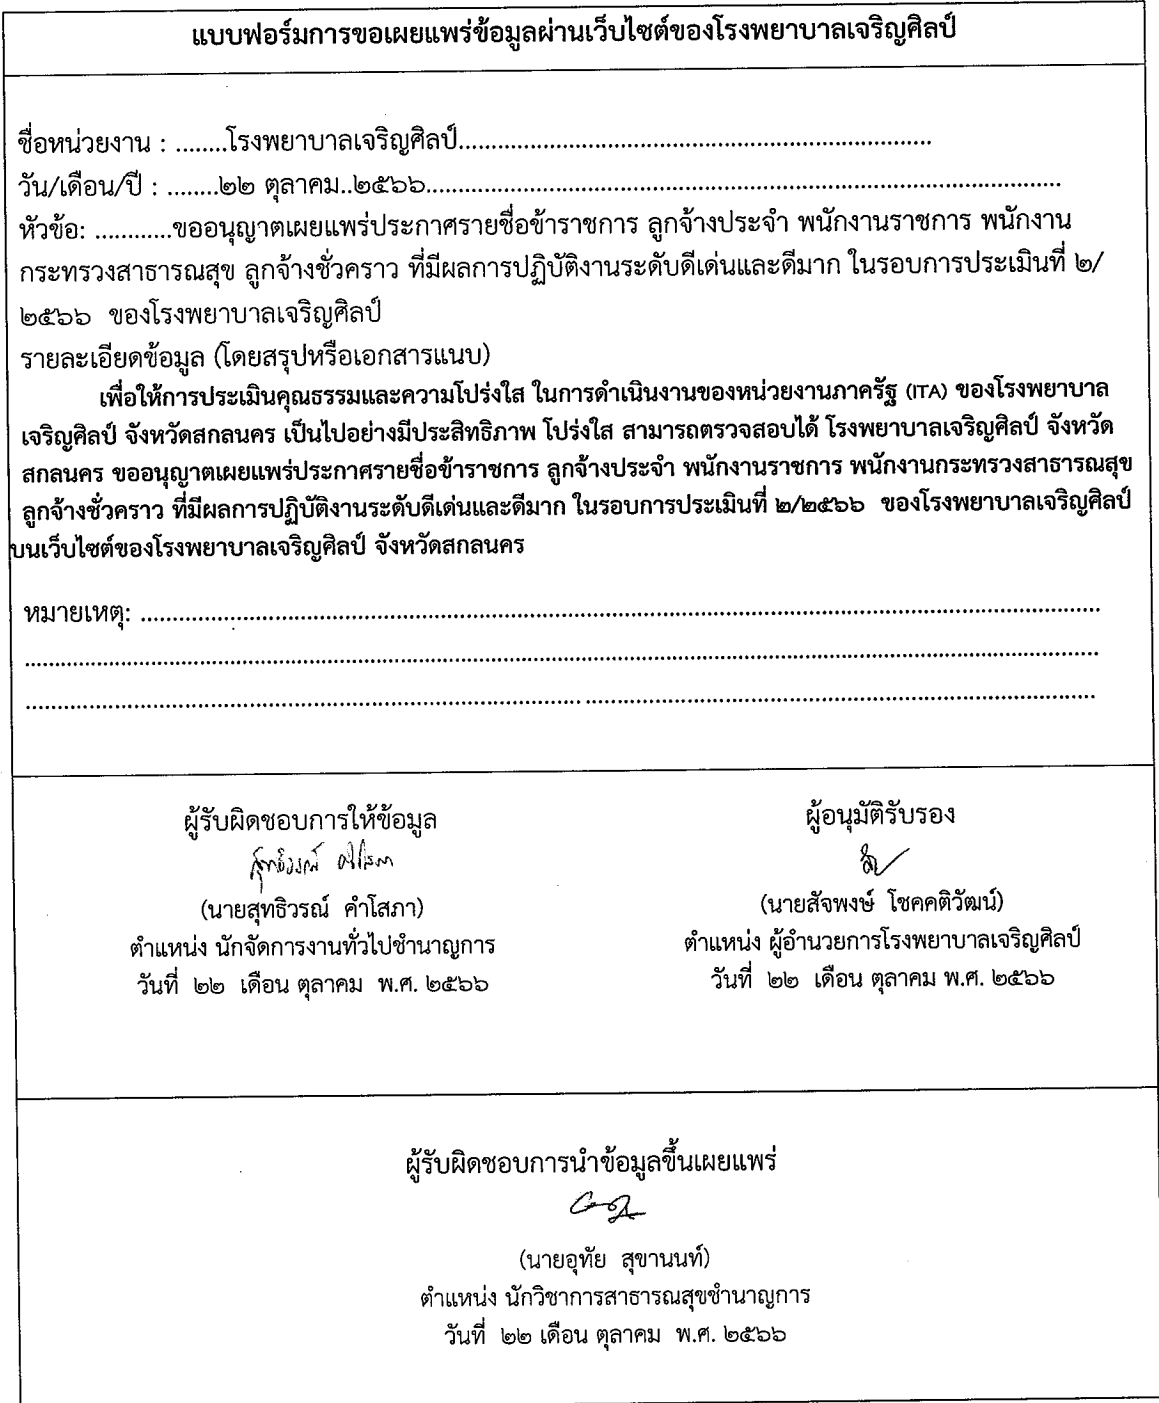 แบบฟอร์มการขอเผยแพร่ข้อมูลผ่านเว็บไซต์ของโรงพยาบาลเจริญศิลป์
ชื่อหน่วยงาน : ........โรงพยาบาลเจริญศิลป์..........................................................................
วัน/เดือน/ปี : ........๒๒ ตุลาคม..๒๕๖๖...................................................................................................
หัวข้อ: ............ขออนุญาตเผยแพร่ประกาศรายชื่อข้าราชการ ลูกจ้างประจำ พนักงานราชการ พนักงาน
กระทรวงสาธารณสุข ลูกจ้างชั่วคราว ที่มีผลการปฏิบัติงานระดับดีเด่นและดีมาก ในรอบการประเมินที่ ๒/
๒๕๖๖ ของโรงพยาบาลเจริญศิลป์
รายละเอียดข้อมูล (โดยสรุปหรือเอกสารแนบ)
เพื่อให้การประเมินคุณธรรมและความโปร่งใส ในการดำเนินงานของหน่วยงานภาครัฐ (ITA) ของโรงพยาบาล
เจริญศิลป์ จังหวัดสกลนคร เป็นไปอย่างมีประสิทธิภาพ โปร่งใส สามารถตรวจสอบได้ โรงพยาบาลเจริญศิลป์ จังหวัด
สกลนคร ขออนุญาตเผยแพร่ประกาศรายชื่อข้าราชการ ลูกจ้างประจำ พนักงานราชการ พนักงานกระทรวงสาธารณสุข
ลูกจ้างชั่วคราว ที่มีผลการปฏิบัติงานระดับดีเด่นและดีมาก ในรอบการประเมินที่ ๒/๒๕๖๖ ของโรงพยาบาลเจริญศิลป์
บนเว็บไซต์ของโรงพยาบาลเจริญศิลป์ จังหวัดสกลนคร
หมายเหตุ: ......................................................................................................................................................
........................................................................................................................................................................
........................................................................................................................................................................
ผู้รับผิดชอบการให้ข้อมูล
สุทธิวรณ์ คำโสภา
(นายสุทธิวรณ์ คำโสภา)
ตำแหน่ง นักจัดการงานทั่วไปชำนาญการ
วันที่ ๒๒ เดือน ตุลาคม พ.ศ. ๒๕๖๖
ผู้อนุมัติรับรอง
(นายสัจพงษ์ โชคคติวัฒน์)
ตำแหน่ง ผู้อำนวยการโรงพยาบาลเจริญศิลป์
วันที่ ๒๒ เดือน ตุลาคม พ.ศ. ๒๕๖๖
ผู้รับผิดชอบการนำข้อมูลขึ้นเผยแพร่
(นายอุทัย สุขานนท์)
ตำแหน่ง นักวิชาการสาธารณสุขชำนาญการ
วันที่ ๒๒ เดือน ตุลาคม พ.ศ. ๒๕๖๖